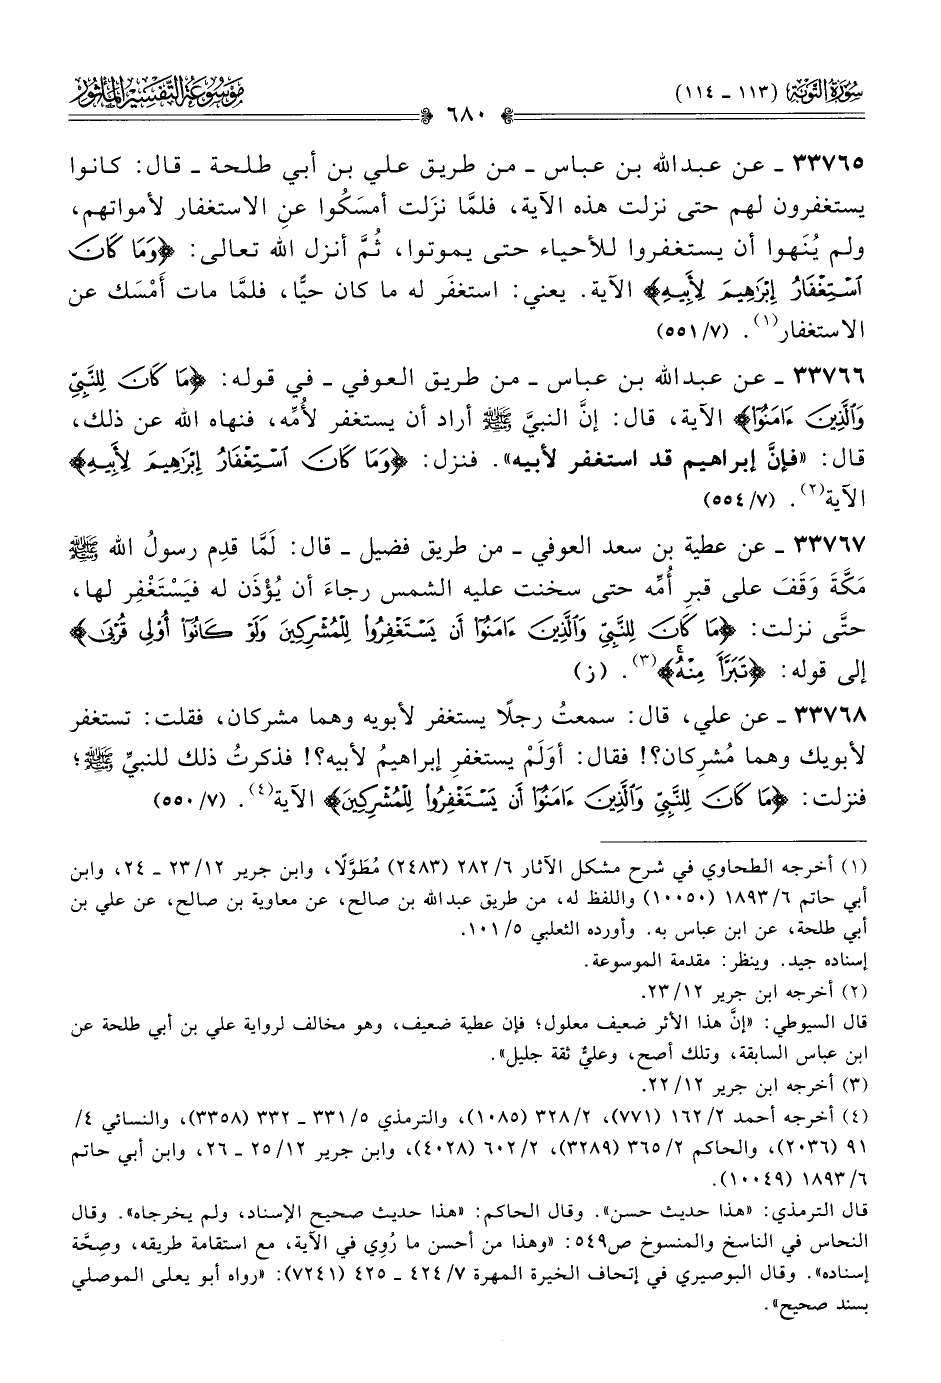 سُورَةُ التَّوْبَةِ (١١٣ - ١١٤)
مَوْسُوعَةُ التَّفْسِيرِ المَأْثُورِ
٦٨٠
٣٣٧٦٥ - عن عبدالله بن عباس - من طريق علي بن أبي طلحة - قال: كانوا
يستغفرون لهم حتى نزلت هذه الآية، فلمَّا نزَلت أمسَكُوا عنِ الاستغفار لأمواتهم،
ولم يُنهوا أن يستغفروا للأحياء حتى يموتوا، ثُمَّ أنزل الله تعالى: ﴿وَمَا كَانَ
ٱسْتِغْفَارُ إِبْرَٰهِيمَ لِأَبِيهِ﴾ الآية. يعني: استغفَر له ما كان حيًّا، فلمَّا مات أَمْسَك عن
الاستغفار(١). (٧/ ٥٥١)
٣٣٧٦٦ - عن عبدالله بن عباس - من طريق العوفي - في قوله: ﴿مَا كَانَ لِلنَّبِيِّ
وَٱلَّذِينَ ءَامَنُوٓا۟﴾ الآية، قال: إنَّ النبيَّ ﷺ أراد أن يستغفر لأُمِّه، فنهاه الله عن ذلك،
قال: «فإنَّ إبراهيم قد استغفر لأبيه». فنزل: ﴿وَمَا كَانَ ٱسْتِغْفَارُ إِبْرَٰهِيمَ لِأَبِيهِ﴾
الآية(٢). (٧/ ٥٥٤)
٣٣٧٦٧ - عن عطية بن سعد العوفي - من طريق فضيل - قال: لَمَّا قدِم رسولُ الله ﷺ
مَكَّةَ وَقَفَ على قبرِ أُمِّه حتى سخنت عليه الشمس رجاءَ أن يُؤْذَن له فيَسْتَغْفِر لها،
حتَّى نزلت: ﴿مَا كَانَ لِلنَّبِيِّ وَٱلَّذِينَ ءَامَنُوٓا۟ أَن يَسْتَغْفِرُوا۟ لِلْمُشْرِكِينَ وَلَوْ كَانُوٓا۟ أُو۟لِى قُرْبَىٰ﴾
إلى قوله: ﴿تَبَرَّأَ مِنْهُ ۚ﴾(٣). (ز)
٣٣٧٦٨ - عن علي، قال: سمعتُ رجلًا يستغفر لأبويه وهما مشركان، فقلت: تستغفر
لأبويك وهما مُشرِكان؟! فقال: أوَلَمْ يستغفرِ إبراهيمُ لأبيه؟! فذكرتُ ذلك للنبيِّ ﷺ؛
فنزلت: ﴿مَا كَانَ لِلنَّبِيِّ وَٱلَّذِينَ ءَامَنُوٓا۟ أَن يَسْتَغْفِرُوا۟ لِلْمُشْرِكِينَ﴾ الآية(٤). (٧/ ٥٥٠)
(١) أخرجه الطحاوي في شرح مشكل الآثار ٦/ ٢٨٢ (٢٤٨٣) مُطَوَّلًا، وابن جرير ١٢/ ٢٣ - ٢٤، وابن
أبي حاتم ٦/ ١٨٩٣ (١٠٠٥٠) واللفظ له، من طريق عبدالله بن صالح، عن معاوية بن صالح، عن علي بن
أبي طلحة، عن ابن عباس به. وأورده الثعلبي ٥/ ١٠١.
إسناده جيد. وينظر: مقدمة الموسوعة.
(٢) أخرجه ابن جرير ١٢/ ٢٣.
قال السيوطي: «إنَّ هذا الأثر ضعيف معلول؛ فإن عطية ضعيف، وهو مخالف لرواية علي بن أبي طلحة عن
ابن عباس السابقة، وتلك أصح، وعليٌّ ثقة جليل».
(٣) أخرجه ابن جرير ١٢/ ٢٢.
(٤) أخرجه أحمد ٢/ ١٦٢ (٧٧١)، ٢/ ٣٢٨ (١٠٨٥)، والترمذي ٥/ ٣٣١ - ٣٣٢ (٣٣٥٨)، والنسائي ٤/
٩١ (٢٠٣٦)، والحاكم ٢/ ٣٦٥ (٣٢٨٩)، ٢/ ٦٠٢ (٤٠٢٨)، وابن جرير ١٢/ ٢٥ - ٢٦، وابن أبي حاتم
٦/ ١٨٩٣ (١٠٠٤٩).
قال الترمذي: «هذا حديث حسن». وقال الحاكم: «هذا حديث صحيح الإسناد، ولم يخرجاه». وقال
النحاس في الناسخ والمنسوخ ص٥٤٩: «وهذا من أحسن ما رُوِي في الآية، مع استقامة طريقه، وصِحَّة
إسناده». وقال البوصيري في إتحاف الخيرة المهرة ٧/ ٤٢٤ - ٤٢٥ (٧٢٤١): «رواه أبو يعلى الموصلي
بسند صحيح».